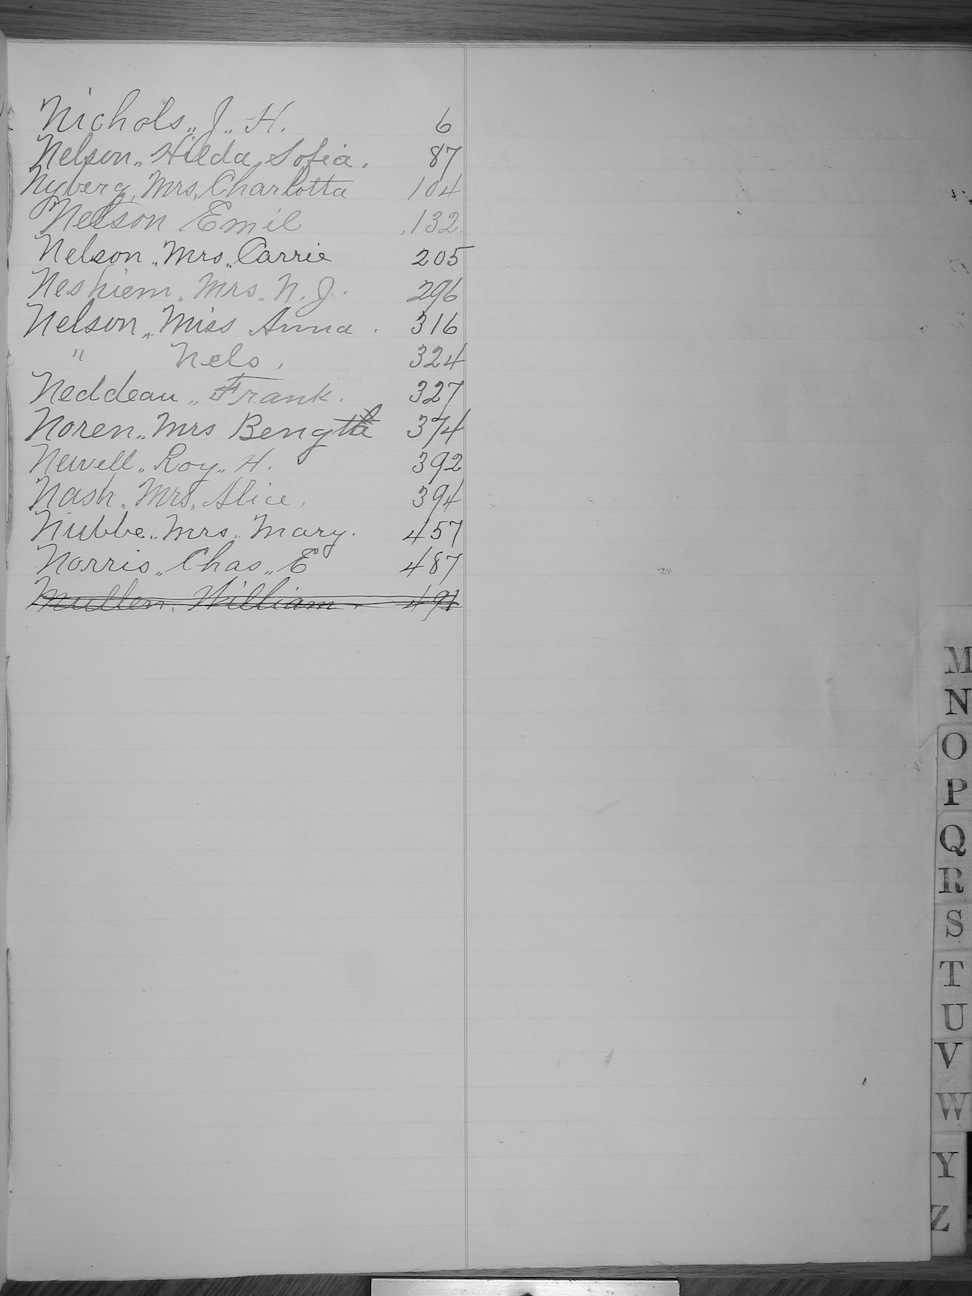 Nichols,, J,, H. 6
Nelson,, Hilda, Sofia. 87
Nyberg, Mrs, Charlotta 104
Nelson Emil 132
Nelson,, Mrs,, Carrie 205
Neshiem, Mrs, N. J. 296
Nelson,, Miss Anna. 316
" Nels. 324
Neddeau,, Frank. 327
Noren,, Mrs Bengta 374
Newell,, Roy,, H. 392
Nash, Mrs, Alice. 394
Nubbe,, Mrs,, Mary. 457
Norris,, Chas,, E 487
Mullen, William. 491
M
N
O
P
Q
R
S
T
U
V
W
Y
Z